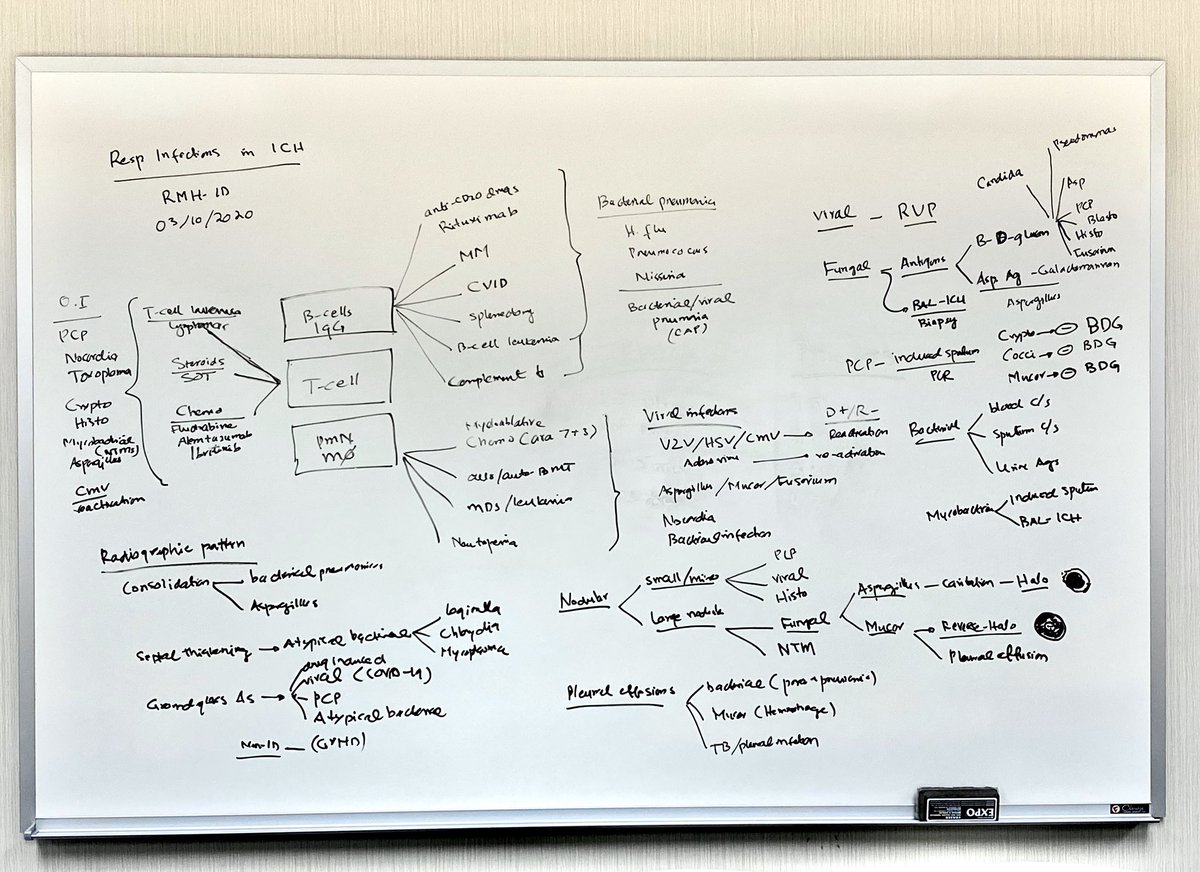 Resp Infections in ICH
RMH-ID
03/10/2020
O.I
PCP
Nocardia
Toxoplasma
Crypto
Histo
Mycobacteriae
(NTMs)
Aspergillus
CMV
reactivation
T-cell
Steroids
SOT
Chemo
Fludrabine
Alemtuzumab
Ibrutinib
B-cells
IgG
T-cell
PMN
MØ
anti-CD20 drugs
Rituximab
MM
CVID
Splenectomy
B-cell leukemia
Complement
Myeloablative
Chemo (ara 7+3)
allo/auto-BMT
MDS/leukemia
Neutropenia
Bacterial pneumonia
H. flu
Pneumococcus
Bacterial/viral
(CAP)
Viral infections
VZV/HSV/CMV
D+/R-
Reactivation
Adenovirus
re-activation
Aspergillus/Mucor/Fusarium
Nocardia
Bacterial infection
Viral - RVP
Fungal
Antigens
B-D-glucan
Candida
Pseudomonas
Asp
PCP
Blasto
Histo
Fusarium
Asp. Ag - Galactomannan
Aspergillus
BAL-ICH
Biopsy
PCP - induced sputum
PCR
Crypto → ⊖ BDG
Cocci → ⊖ BDG
Mucor → ⊖ BDG
Bacterial
blood c/s
Sputum c/s
Urine Ags
Mycobacteria
Induced sputum
BAL-ICH
Radiographic pattern
Consolidation
bacterical pneumonias
Aspergillus
Septal thickening → Atypical bacterial
Chlamydia
Mycoplasma
Groundglass →
drug induced
viral (COVID-19)
PCP
Atypical bacteria
Non-ID - (GVHD)
Nodular
small/micro
PCP
viral
Histo
Large nodule
Fungal
NTM
Aspergillus - Cavitation - Halo
Mucor
Reverse-Halo
Pleural effusion
Pleural effusions
bacterial
Mucor (Hemorrhage)
TB/pleural infection
EXPO